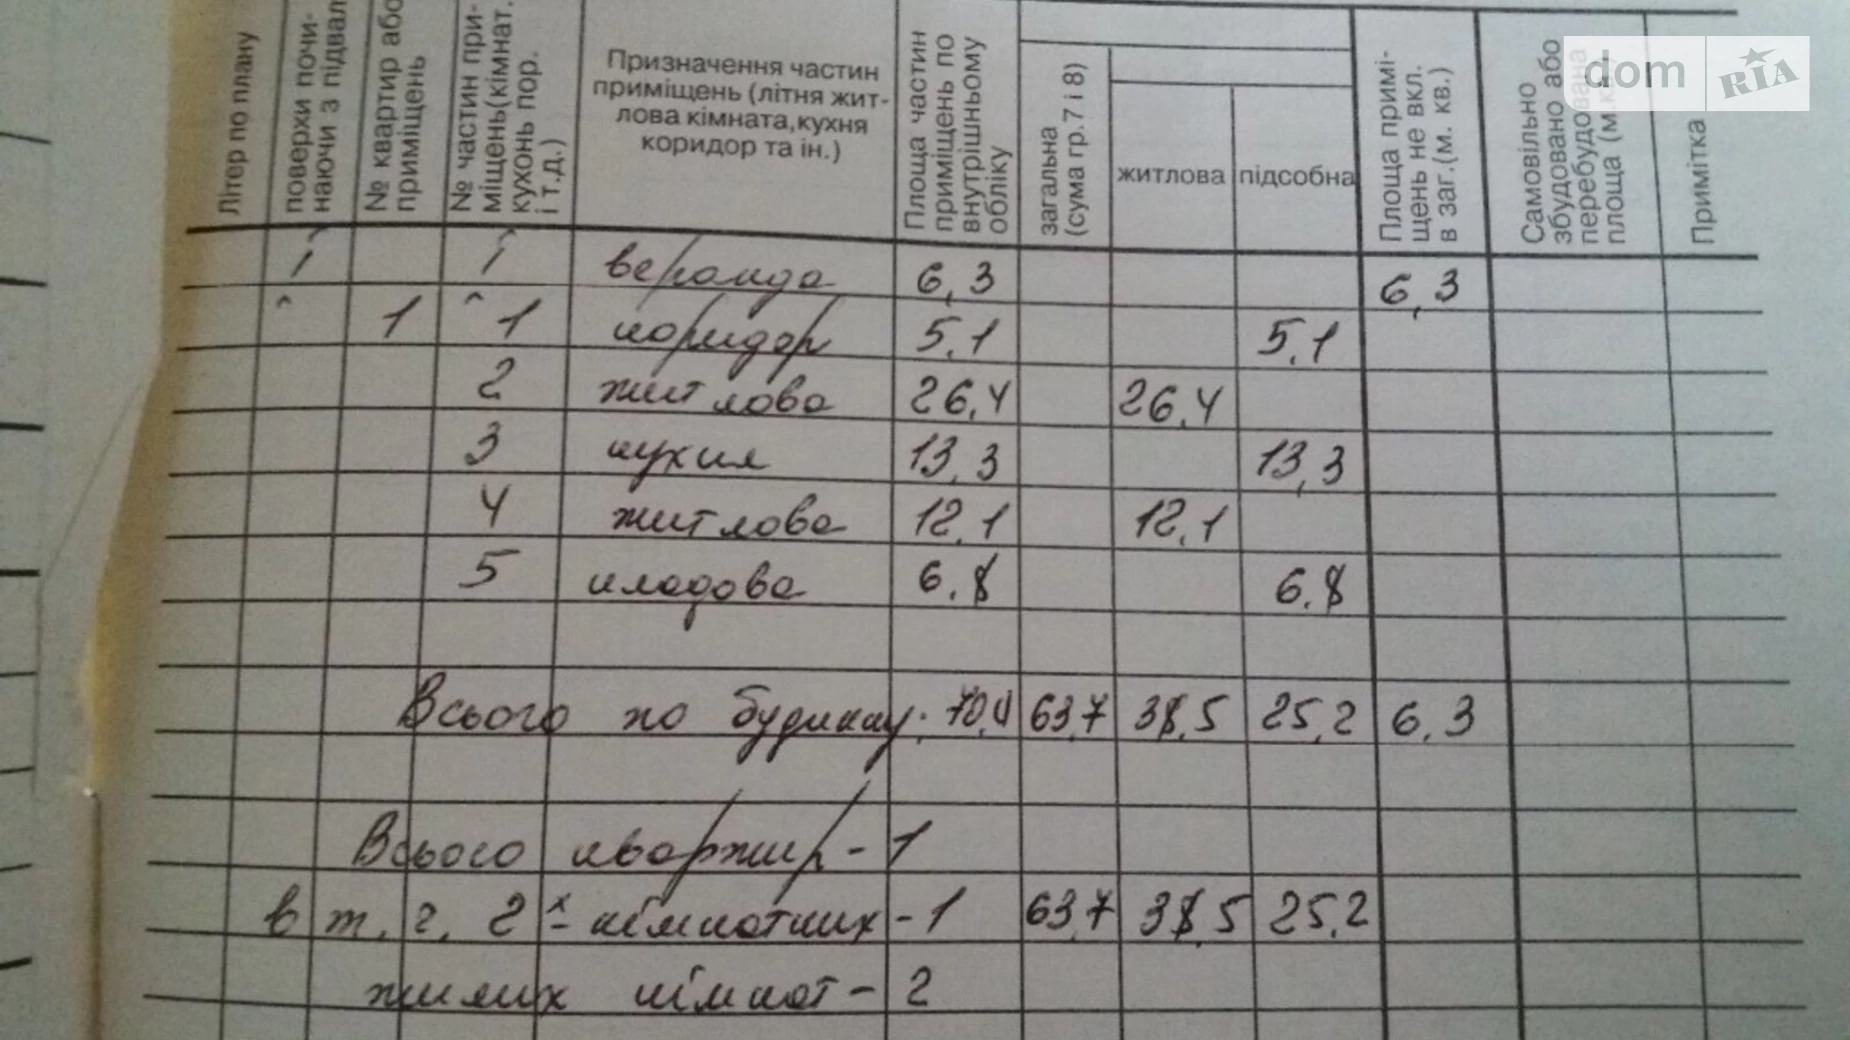 Літер по плану
поверхи почи-
наючи з підвал
№ квартир або
приміщень
№ частин при-
міщень(кімнат.
кухонь пор.
і т.д.)
Призначення частин
приміщень (літня жит-
лова кімната,кухня
коридор та ін.)
Площа частин
приміщень по
внутрішньому
обліку
загальна
(сума гр.7 і 8)
житлова
підсобна
Площа примі-
щень не вкл.
в заг.(м. кв.)
Самовільно
збудовано або
перебудована
площа (м.кв.)
Примітка
dom RIA
1 1 веранда 6,3 6,3
1 1 коридор 5,1 5,1
2 житлова 26,4 26,4
3 кухня 13,3 13,3
4 житлова 12,1 12,1
5 кладова 6,8 6,8
Всього по будинку: 70,0 63,7 38,5 25,2 6,3
Всього квартир - 1
в т.ч. 2х - кімнатних - 1 63,7 38,5 25,2
жилих кімнат - 2